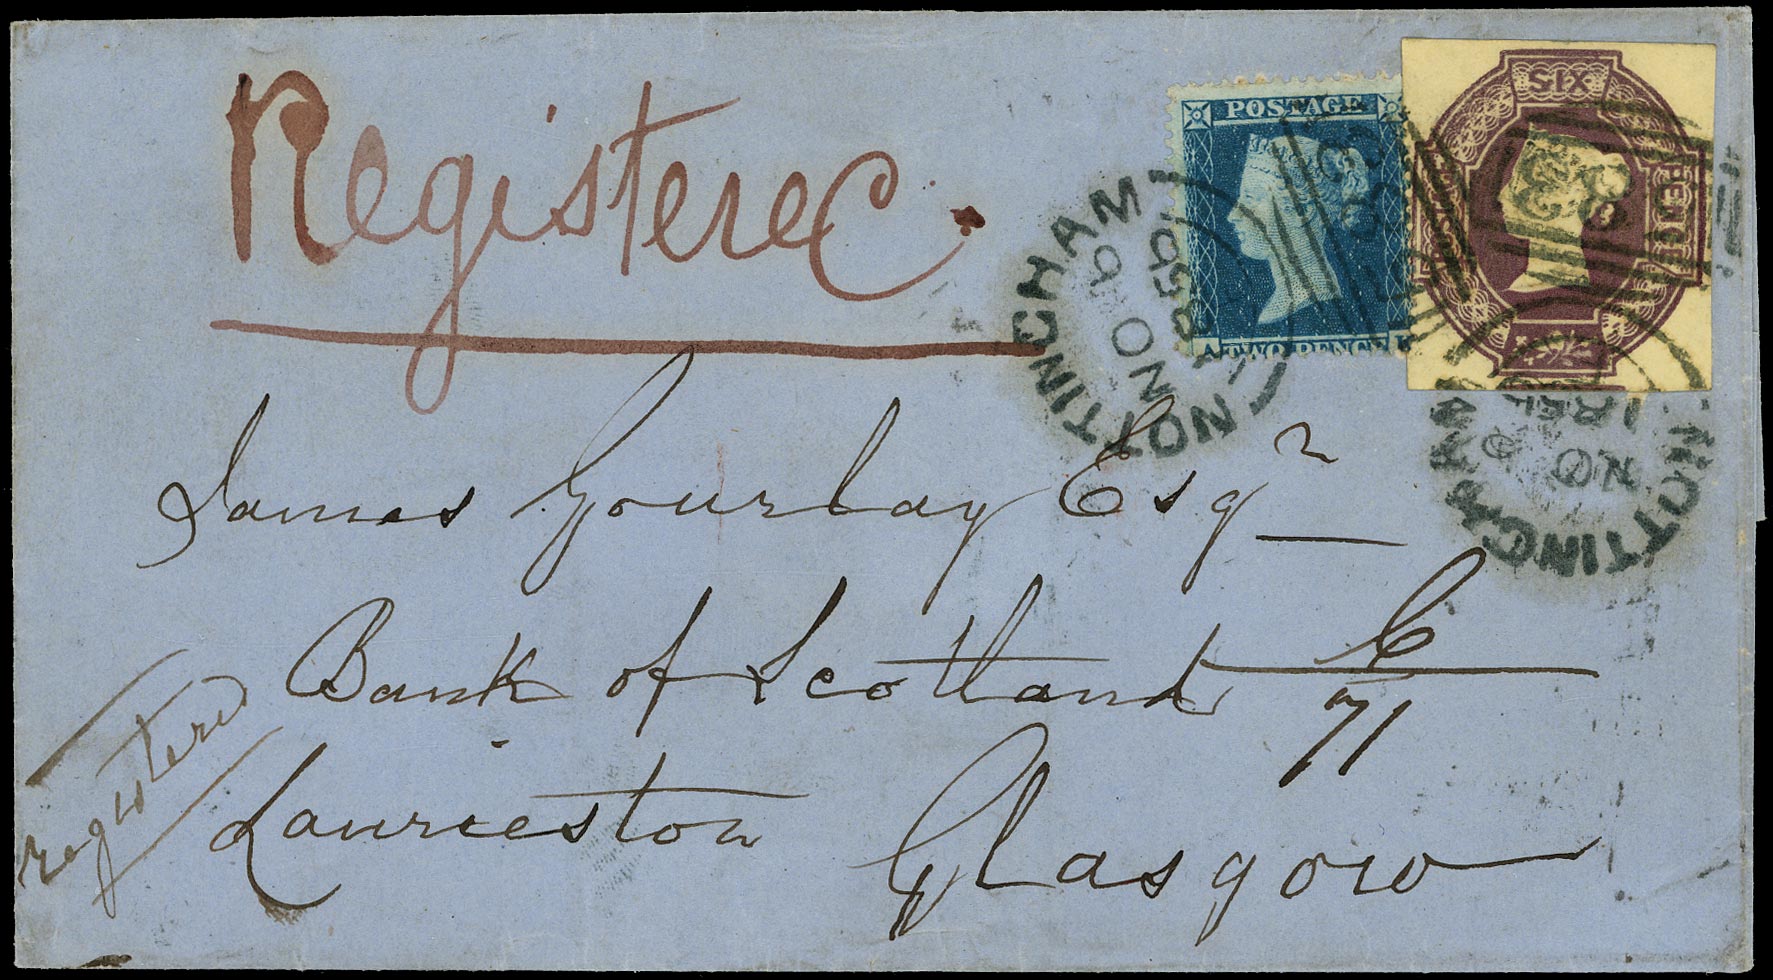 Registered.
POSTAGE
TWO PENCE
A
SIX
PENCE
NOTTINGHAM
NO 9
NOTTINGHAM
NO
James Gourlay Esqr
Bank of Scotland
71
Laurieston Glasgow
registered